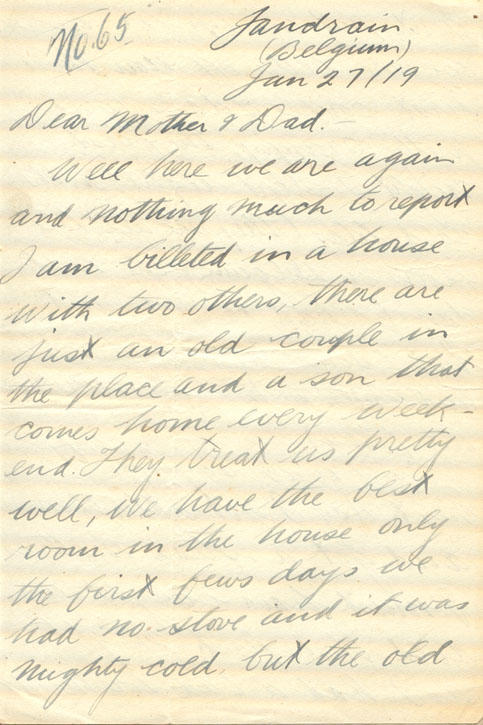 No. 65
Jandrain
(Belgium)
Jan 27/19
Dear Mother & Dad. -
Well here we are again
and nothing much to report
I am billeted in a house
with two others, there are
just an old couple in
the place and a son that
comes home every week-
end. They treat us pretty
well, we have the best
room in the house only
the first fews days we
had no stove and it was
mighty cold but the old